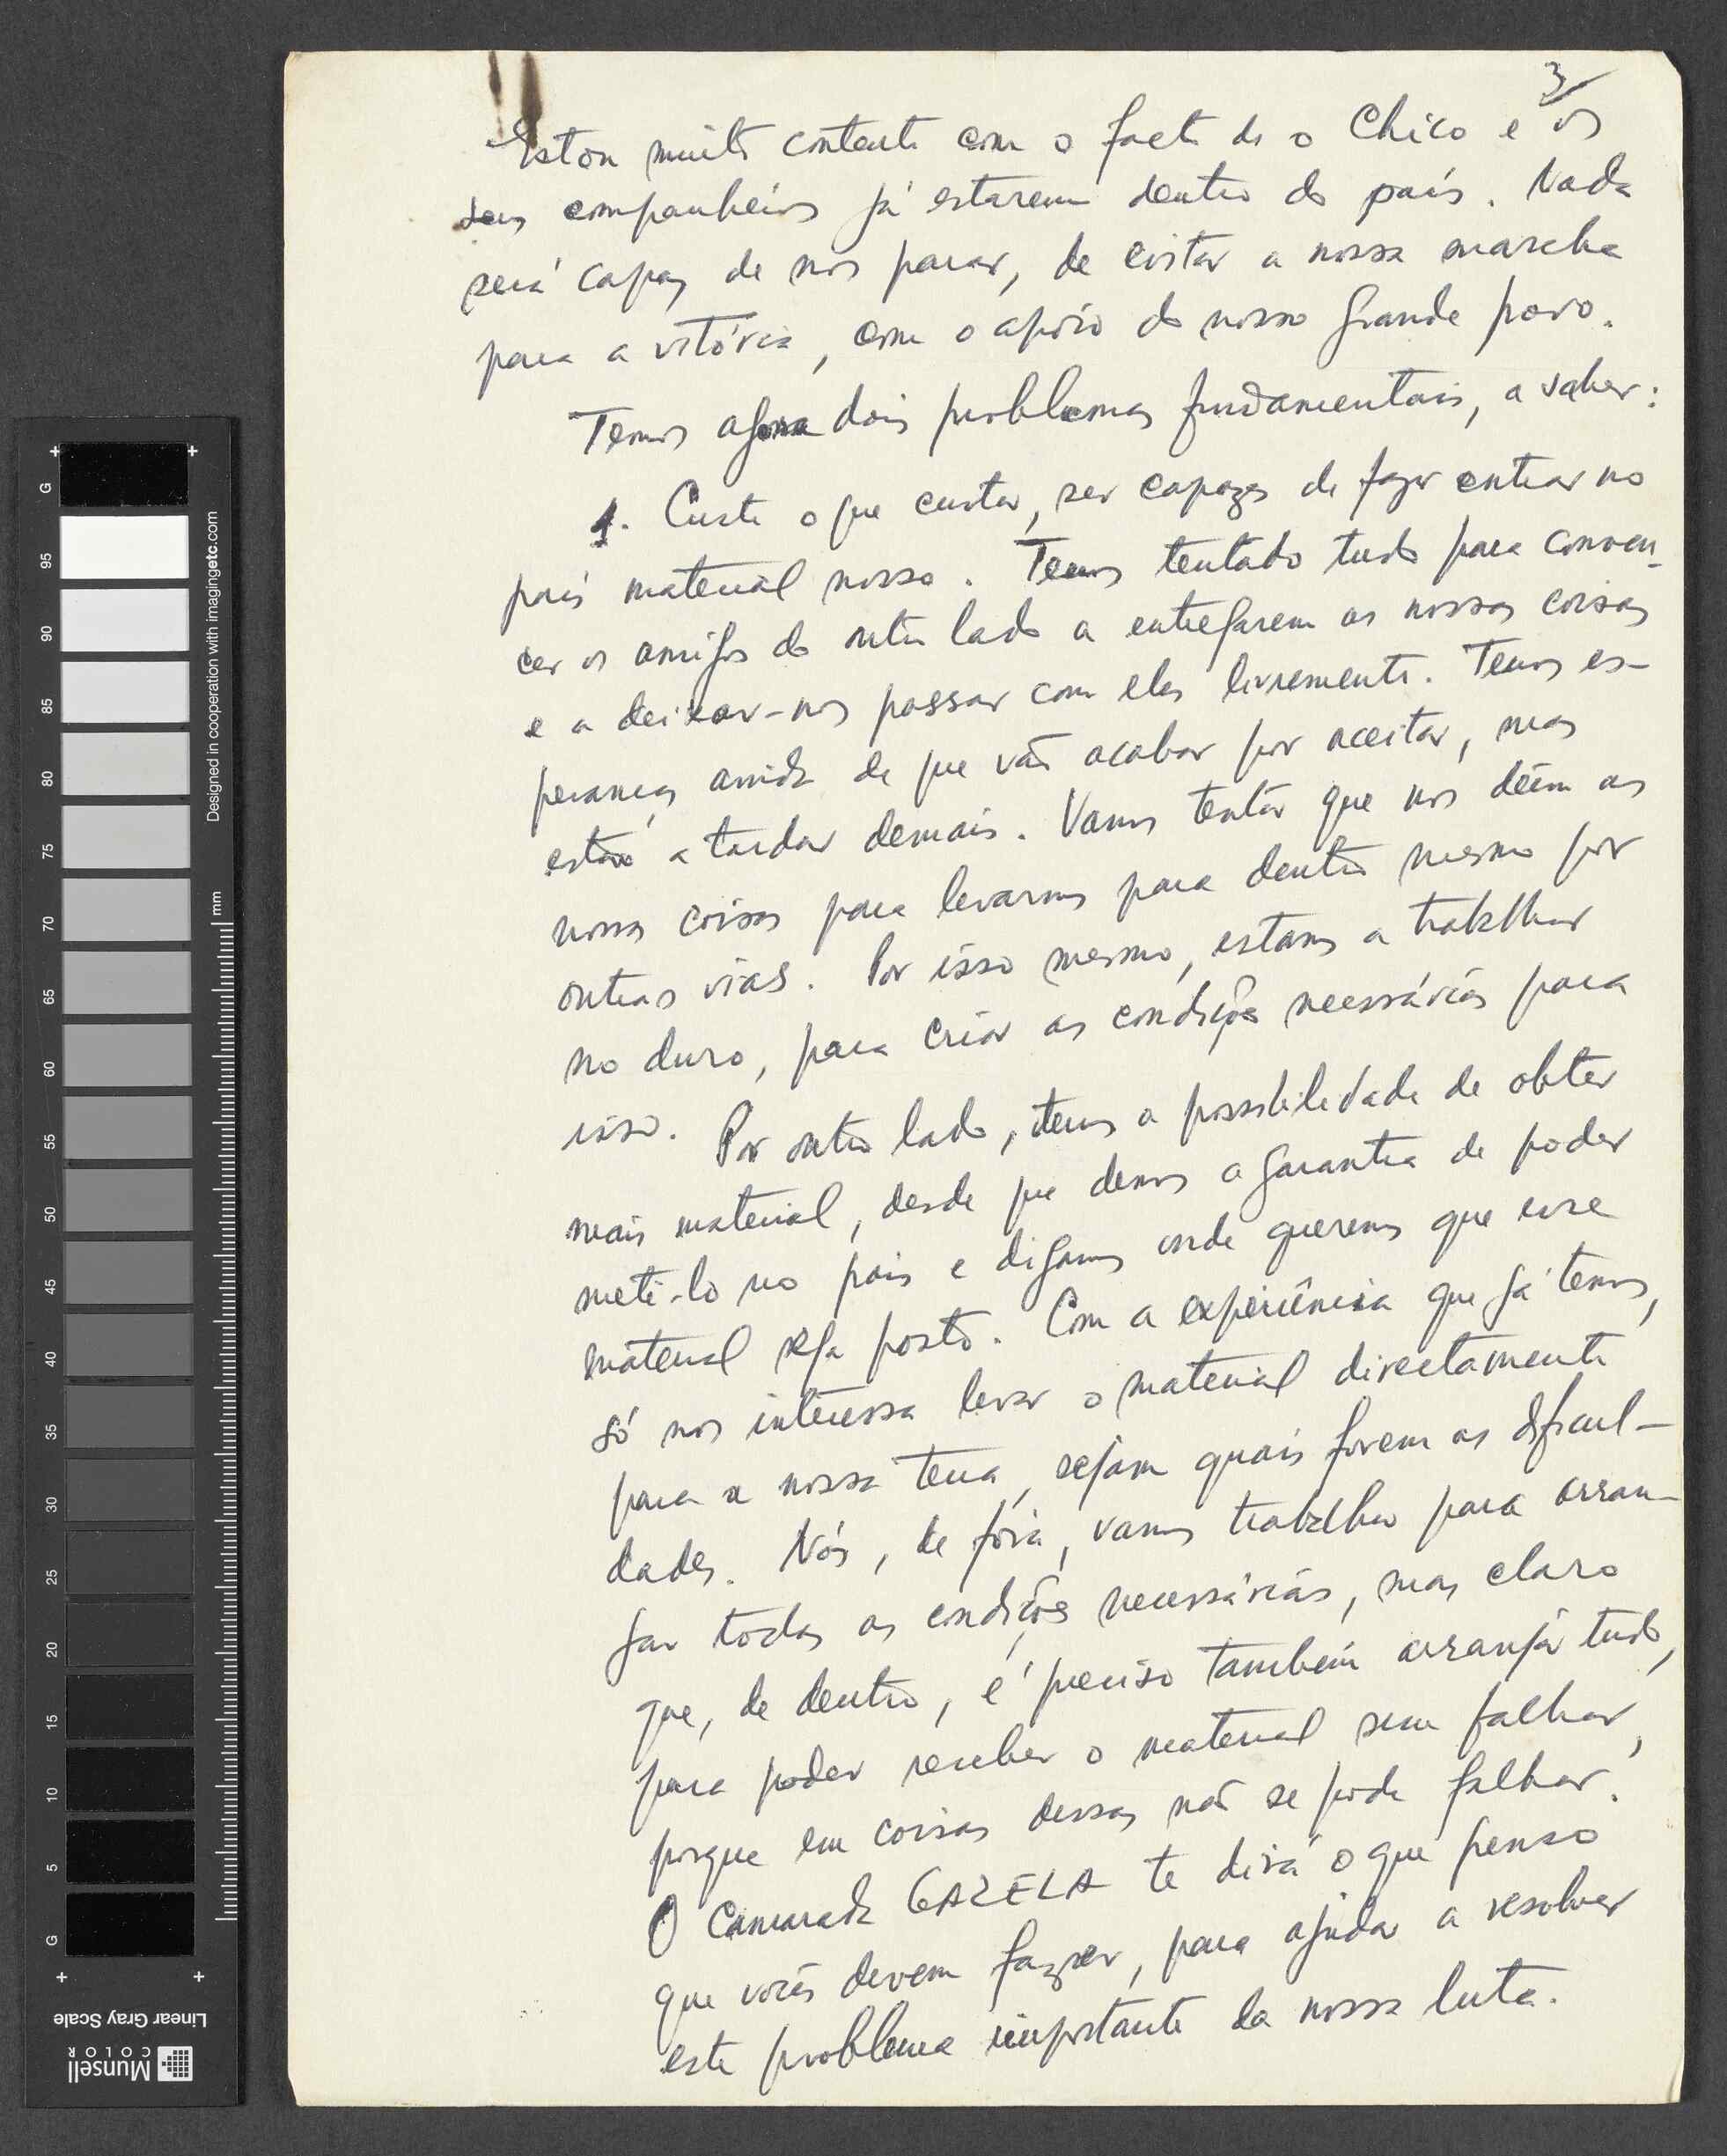 3/
Estou muito contente com o facto de o Chico e os
seus companheiros já estarem dentro do país. Nada
será capaz de nos parar, de evitar a nossa marcha
para a vitória, com o apoio do nosso grande povo.
Temos agora dois problemas fundamentais, a saber:
1. Custe o que custar, ser capazes de fazer entrar no
país material nosso. Temos tentado tudo para conven-
cer os amigos do outro lado a entregarem as nossas coisas
e a deixar-nos passar com elas livremente. Temos es-
peranças ainda de que vão acabar por aceitar, mas
estão a tardar demais. Vamos tentar que nos dêem as
nossas coisas para levarmos para dentro mesmo por
outras vias. Por isso mesmo, estamos a trabalhar
no duro, para criar as condições necessárias para
isso. Por outro lado, temos a possibilidade de obter
mais material, desde que demos a garantia de poder
metê-lo no país e digamos onde queremos que esse
material seja posto. Com a experiência que já temos,
só nos interessa levar o material directamente
para a nossa terra, sejam quais forem as dificul-
dades. Nós, de fóra, vamos trabalhar para arran-
jar todas as condições necessárias, mas claro
que, de dentro, é preciso também arranjar tudo,
para poder receber o material sem falhar,
porque em coisas dessas não se pode falhar.
O Camarada GAZELA te dirá o que penso
que vocês devem fazer, para ajudar a resolver
este problema importante da nossa luta.
G 95 90 85 80 75 70 65 60 55 50 45 40 35 30 25 20 15 10 5 G
mm
Designed in cooperation with imagingetc.com
Linear Gray Scale
Munsell
COLOR